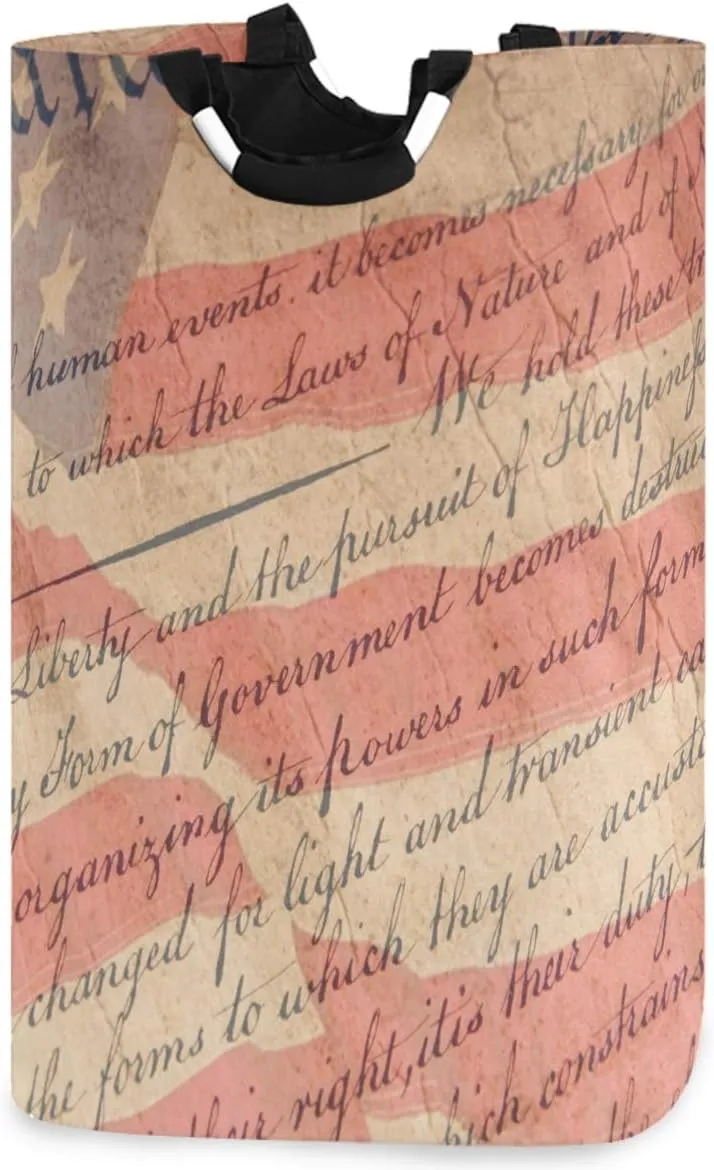 human events. it becomes necessary for
to which the Laws of Nature and of
We hold these
Liberty and the pursuit of Happiness
Form of Government becomes
organizing its powers in such form
changed for light and transient
the forms to which they are
their right, itis their duty,
which constrains
the